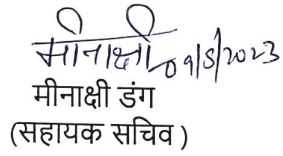 मीनाक्षी 09/5/2023
मीनाक्षी डंग
(सहायक सचिव)